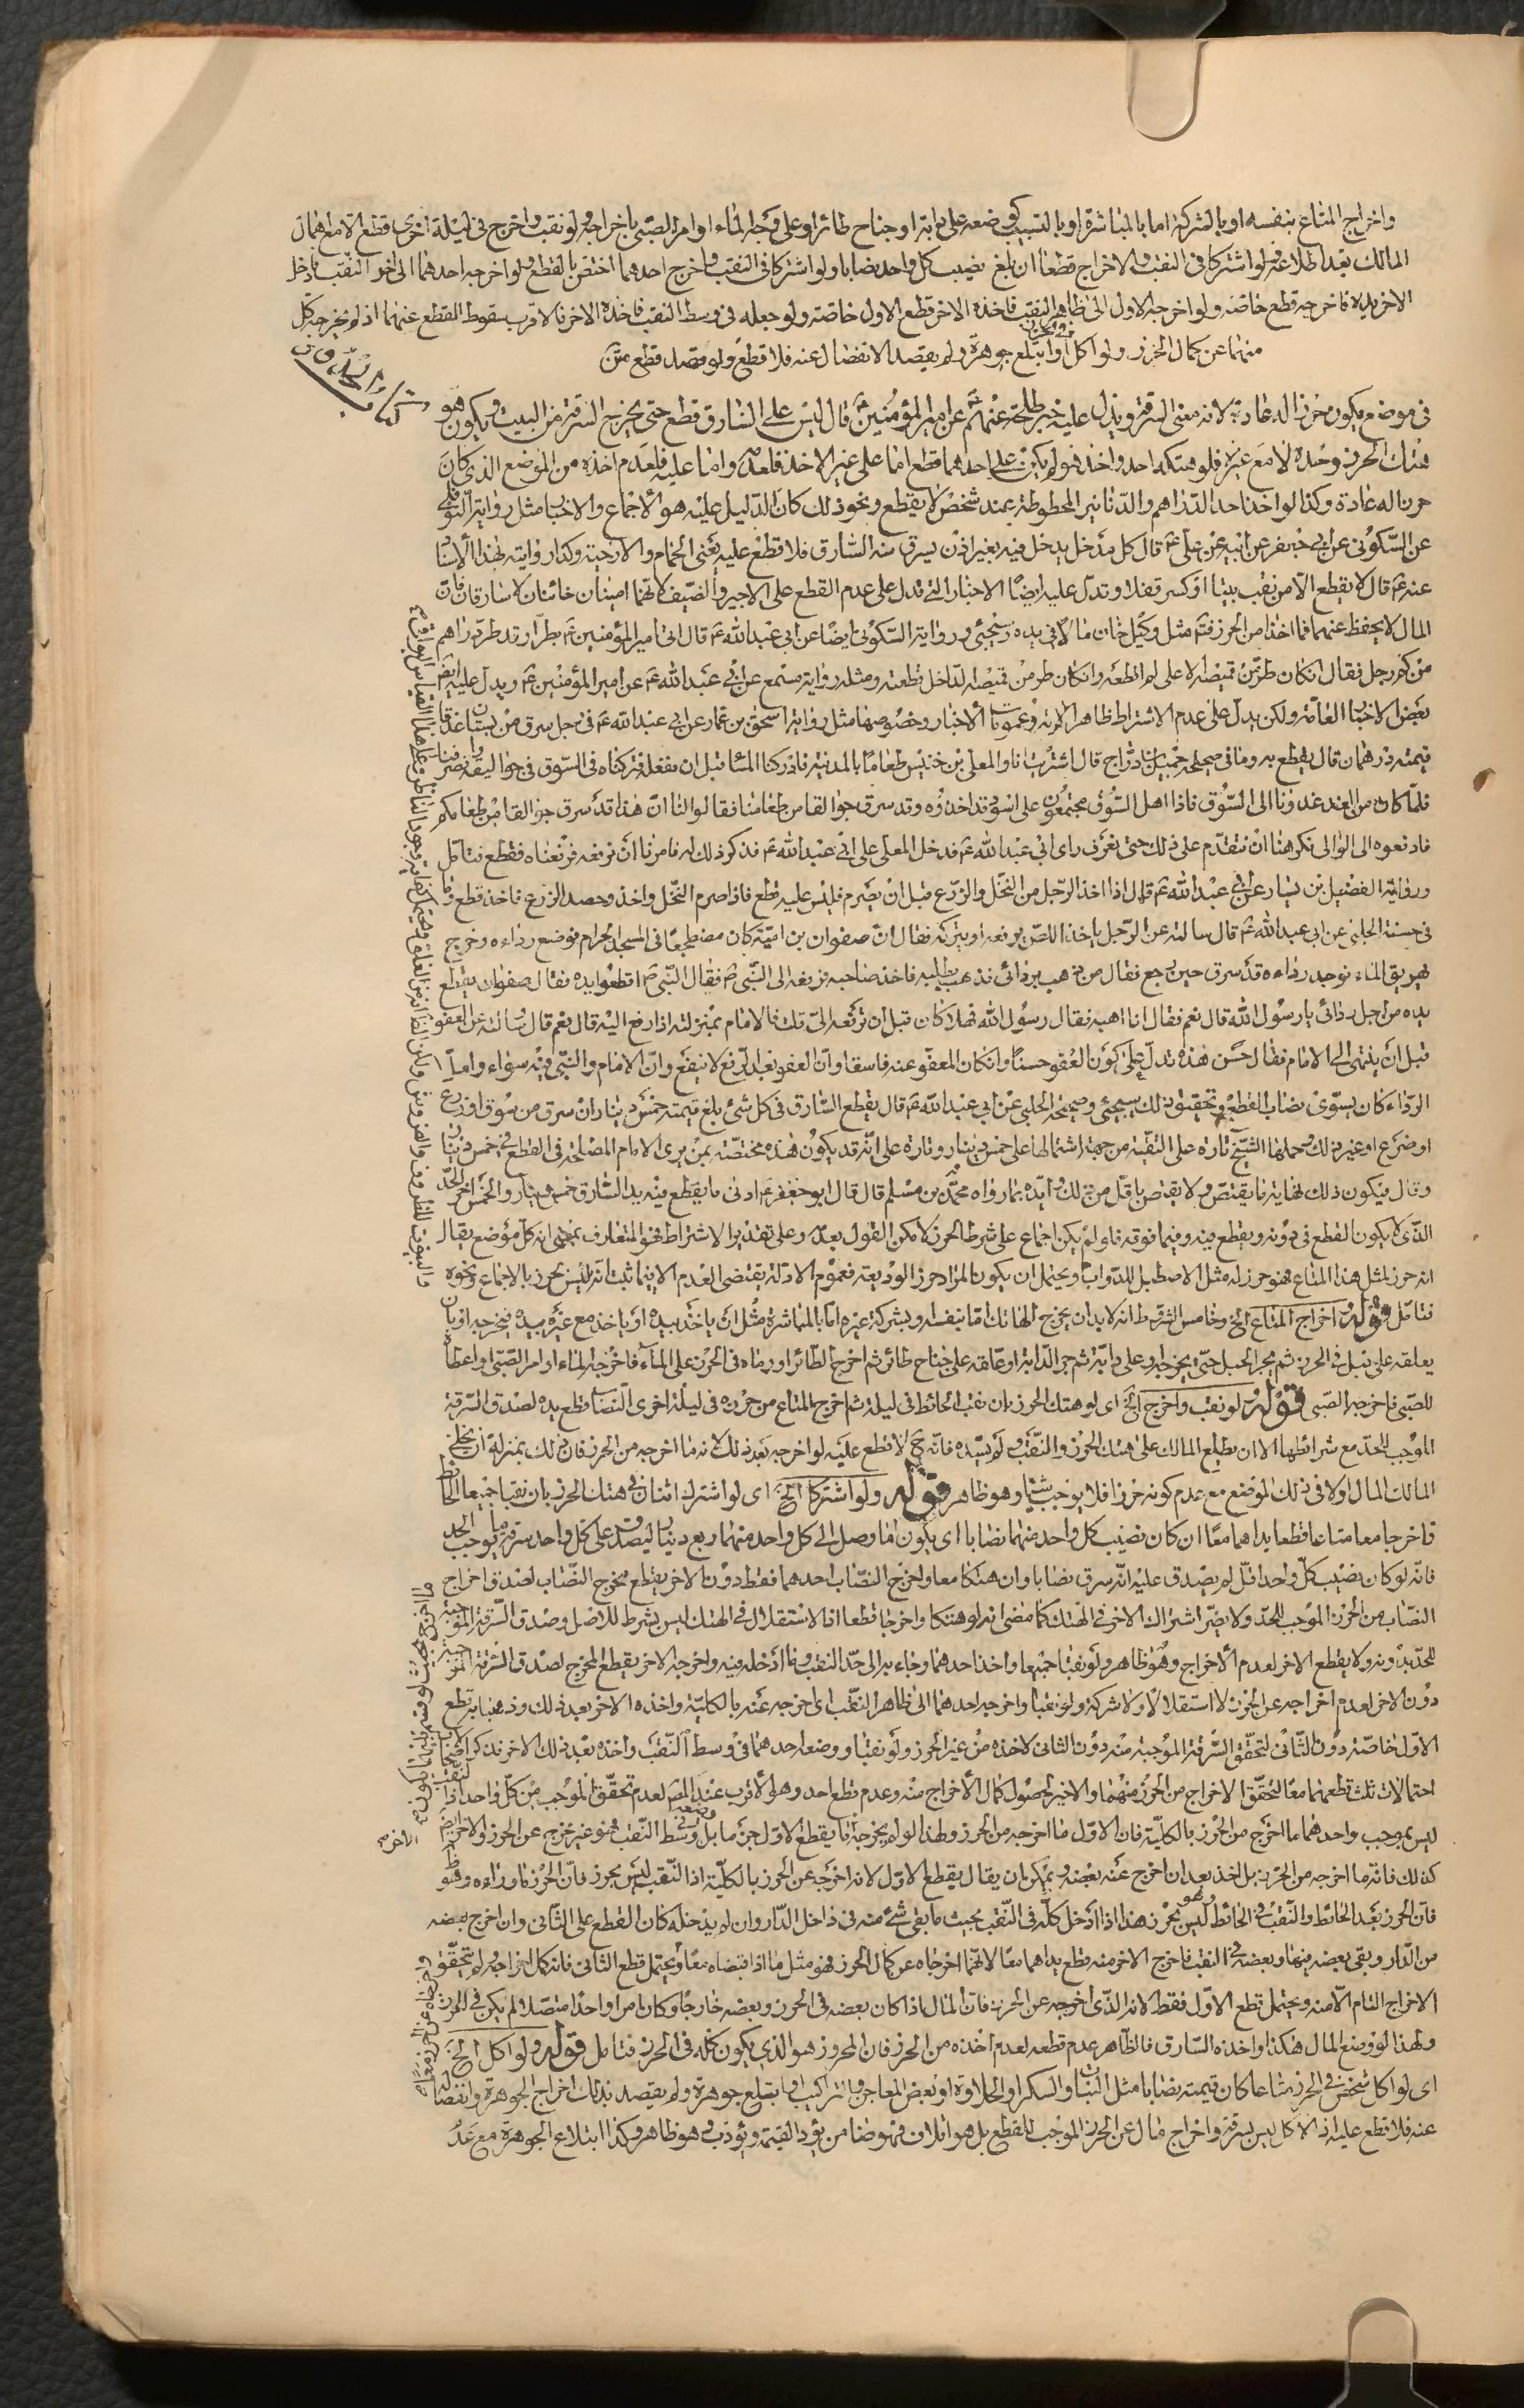 واخراج المتاع بنفسه او بالشركة اما بالمباشرة او بالتسبيب كوضعه على دابة او جناح طائر او على وجه الماء او امر الصبي باخراجه ولو نقب واخرج في ليلة اخرى قطع الا مع اهمال
المالك بعد اطلاعه ولو اشتركا في النقب والاخراج قطعا ان بلغ نصيب كل واحد نصابا ولو اشتركا في النقب واخرج احدهما اختص بالقطع ولو اخرجه احدهما الى اخر النقب فادخل
الاخر يده فاخرجه قطع خاصة ولو اخرجه الاول الى ظاهر النقب فاخذه الاخر قطع الاول خاصة ولو جعله في وسط النقب فاخذه الاخر فالاقرب سقوط القطع عنهما اذ لم يخرجه كل
منهما عن كمال الحرز ولو اكل في الحرز او ابتلع جوهرة ولم يقصد الانفصال عنه فلا قطع ولو قصد قطع
في موضع يكون محرزا له عادة لانه معنى السرقة ويدل عليه خبر طلحة عنهم عن امير المؤمنين ع قال ليس على السارق قطع حتى يخرج السرقة من البيت ويكون هو
هتاك الحرز وحده او مع غيره فلو هتكه احد واخذ اخر لم يكن على احدهما قطع اما على غير الاخذ فلعدمه واما عليه فلعدم اخذه من الموضع الذي كان
حرزا له عادة وكذا لو اخذ احد الدراهم والدنانير المحطوطة عند شخص لا يقطع ونحو ذلك كان الدليل عليه هو الاجماع والاخبار مثل رواية النوفلي
عن السكوني عن ابي جعفر عن ابيه عن علي ع قال كل مدخل يدخل فيه بغير اذن يسرق منه السارق فلا قطع عليه يعني الحمام والارحية وكذا روايته بهذا الاسناد
عنه ع قال لا يقطع الا من نقب بيتا او كسر قفلا وتدل عليه ايضا الاخبار التي تدل على عدم القطع على الاجير والضيف لانهما امينان خائنان لا سارقان فان
المال لا يحفظ عنهما فما اخذا من الحرز فتم مثل وكيل خان مالا في يده وسيجئ ورواية السكوني ايضا عن ابي عبد الله ع قال اتى امير المؤمنين ع بطرار قد طر دراهم
من كم رجل فقال ان كان طر من قميصه الاعلى لم اقطعه وان كان طر من قميصه الداخل قطعته ومثله رواية مسمع عن ابي عبد الله ع عن امير المؤمنين ع ويدل عليه ايضا
بعض الاخبار العامة ولكن يدل على عدم الاشتراط ظاهر الاية وعمومات الاخبار وخصوصها مثل رواية اسحق بن عمار عن ابي عبد الله ع في رجل سرق من بستان عذقا
قيمته درهمان قال يقطع به وما في صحيحة جميل بن دراج قال اشتريت انا والمعلى بن خنيس طعاما بالمدينة فادركنا المساء قبل ان ننقله فتركناه في السوق في جواليقه وانصرفنا
فلما كان من الغد غدونا الى السوق فاذا اهل السوق مجتمعون على اسود قد اخذوه وقد سرق جوالقا من طعامنا فقالوا لنا ان هذا قد سرق جوالقا من طعامكم
فادفعوه الى الوالي فكرهنا ان نتقدم على ذلك حتى نعرف راى ابي عبد الله ع فدخل المعلى على ابي عبد الله ع فذكر ذلك له فامرنا ان نرفعه فرفعناه فقطع فتامل
ورواية الفضيل بن يسار عن ابي عبد الله ع قال اذا اخذ الرجل من النخل والزرع قبل ان يصرم فليس عليه قطع فاذا صرم النخل واخذ وحصد الزرع فاخذ قطع وما
في حسنة الحلبي عن ابي عبد الله ع قال سالته عن الرجل ياخذ اللص يرفعه او يتركه فقال ان صفوان بن امية كان مضطجعا في المسجد الحرام فوضع رداءه وخرج
يهريق الماء فوجد رداءه قد سرق حين رجع فقال من ذهب بردائي فذهب يطلبه فاخذ صاحبه فرفعه الى النبي ص فقال النبي ص اقطعوا يده فقال صفوان يقطع
يده من اجل ردائي يا رسول الله قال نعم فقال انا اهبه فقال رسول الله فهلا كان قبل ان ترفعه الي قلت فالامام بمنزلته اذا رفع اليه قال نعم قال وسالته عن العفو
قبل ان ينتهى الى الامام فقال حسن هذه تدل على كون العفو حسنا وان كان المعفو عنه فاسقا وان العفو بعد الرفع لا ينفع وان الامام والنبي فيه سواء واما
الرداء كان يسوى نصاب القطع وتحقيق ذلك سيجئ وصحيحة الحلبي عن ابي عبد الله ع قال يقطع السارق في كل شئ بلغ قيمته خمس دينار ان سرق من سوق او زرع
او ضرع او غير ذلك وحملها الشيخ تارة على التقية من جهة اشتمالها على خمس دينار وتارة على انه قد يكون هذه مختصة بمن يرى الامام المصلحة في القطع في خمس دينار
وقال فيكون ذلك نهاية ما يقتص ولا يقتص باقل من ذلك وايده بما رواه محمد بن مسلم قال قال ابو جعفر ع ادنى ما يقطع فيه يد السارق خمس دينار والخمس اخر الحد
الذي لا يكون القطع في دونه ويقطع فيه وفيما فوقه فلو لم يكن اجماع على شرط الحرز لامكن القول بعدمه وعلى تقدير الاشتراط فهو المتعارف بمعنى انه كل موضع يقال
انه حرز لمثل هذا المتاع فهو حرز له مثل الاصطبل للدواب ويحتمل ان يكون المراد حرز الوديعة فعموم الادلة يقتضى العدم الا فيما ثبت انه ليس بحرز بالاجماع ونحوه
فتامل قوله اخراج المتاع الخ وخامس الشرط انه لا بد ان يخرج الهاتك اما بنفسه او بشركة غيره اما بالمباشرة مثل ان ياخذ بيده او ياخذ مع غيره بيده فيخرجه او بان
يعلقه على حبل في الحرز ثم يجر الحبل حتى يخرجه او على دابة ثم جر الدابة او علقه على جناح طائر ثم اخرج الطائر او رماه في الحرز على الماء فاخرجه الماء او امر الصبي او اعطاه
للصبي فاخرجه الصبي قوله ولو نقب واخرج الخ اي لو هتك الحرز بان نقب الحائط في ليلة ثم اخرج المتاع من حرزه في ليلة اخرى النصاب قطع يده لصدق السرقة
الموجب للحد مع شرائطها الا ان يطلع المالك على هتك الحرز والنقب ولم يسده فانه ح لا قطع عليه لو اخرجه بعد ذلك لانه ما اخرجه من الحرز فان ذلك بمنزلة ان يخلي
المالك المال اولا في ذلك الموضع مع عدم كونه حرزا فلا يوجب شيئا وهو ظاهر قوله ولو اشتركا الخ اي لو اشترك اثنان في هتك الحرز بان نقبا جميعا الحائط
فاخرجا معا متاعا قطعا يداهما معا ان كان نصيب كل واحد منهما نصابا اي يكون ما وصل الى كل واحد منهما ربع دينار ليصدق على كل واحد سرقة ما يوجب الحد
فانه لو كان نصيب كل واحد اقل لم يصدق عليه انه سرق نصابا وان هتكا معا واخرج النصاب احدهما فقط دون الاخر يقطع مخرج النصاب لصدق اخراج
النصاب من الحرز الموجب للحد ولا يضر اشتراك الاخر في الهتك كما مضى انه لو هتكا واخرجا قطعا اذ الاستقلال في الهتك ليس بشرط للاصل وصدق السرقة الموجبة
للحد بدونه ولا يقطع الاخر لعدم الاخراج وهو ظاهر ولو نقبا جميعا واخذ احدهما وجاء به الى حد النقب وما ادخله فيه واخرجه الاخر يقطع المخرج لصدق السرقة الموجبة
دون الاخر لعدم اخراجه عن الحرز لا استقلالا ولا شركة ولو نقبا واخرجه احدهما الى ظاهر النقب اي اخرجه عنه بالكلية واخذه الاخر بعد ذلك وذهبا به قطع
الاول خاصة دون الثاني لتحقق السرقة الموجبة منه دون الثاني لاخذه من غير الحرز ولو نقبا ووضعه احدهما في وسط النقب واخذه بعد ذلك الاخر فذكر
احتمالات ثلث قطعهما معا لتحقق الاخراج من الحرز منهما والاخير لحصول كمال الاخراج منه وعدم قطع احد وهو الاقرب عند المص لعدم تحقق الموجب من كل واحد اذ
ليس بموجب واحدهما ما اخرج من الحرز بالكلية فان الاول ما اخرجه من الحرز ولهذا لو لم يخرجه ما يقطع الاول جزما بل وضعه في وسط النقب فهو غير مخرج عن الحرز والاخر ايضا
كذلك فانه ما اخرجه من الحرز بل اخذ بعد ان اخرج عنه بعضه ويمكن ان يقال يقطع الاول لانه اخرجه عن الحرز بالكلية اذ النقب ليس بحرز فان الحرز ما وراءه وهو ظاهر
فان الحرز بعد الحائط والنقب في الحائط ليس بحرز وهو هذا اذا ادخل كله في النقب بحيث ما بقى شئ منه في داخل الدار وان لم يدخله كان القطع على الثاني وان اخرج بعضه
من الدار وبقى بعضه فيها وبعضه في النقب فاخرج الاخر منه قطع يداهما معا لانهما اخرجاه عن كمال الحرز فهو مثل ما اذا قبضاه معا ويحتمل قطع الثاني فانه كمل اخراجه ولم يتحقق
الاخراج التام الا منه ويحتمل قطع الاول فقط لانه الذي اخرجه عن الحرز فان المال اذا كان بعضه في الحرز وبعضه خارجا وكان امرا واحدا متصلا لم يكن في الحرز
ولهذا لو وضع المال هكذا واخذه السارق فالظاهر عدم قطعه لعدم اخذه من الحرز فان المحروز هو الذي يكون كله في الحرز فتامل قوله ولو اكل الخ
اي لو اكل شخص في الحرز متاعا كان قيمته نصابا مثل النبات والسكر او الحلاوة او بعض المعاجين والتراكيب او ابتلع جوهرة ولم يقصد بذلك اخراج الجوهرة وانفصاله
عنه فلا قطع عليه اذ الاكل ليس بسرقة واخراج مال عن الحرز الموجب للقطع بل هو اتلاف فهو ضامن يؤد القيمة ويؤدب وهو ظاهر وكذا ابتلاع الجوهرة مع عدم